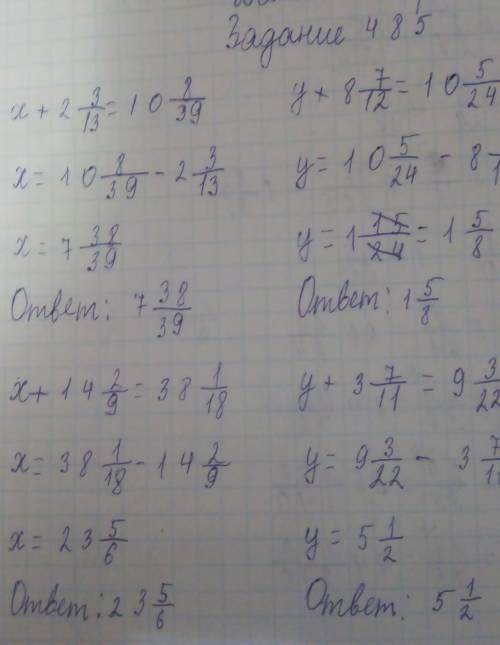 Задание 485
x + 2 3/13 = 10 8/39
x = 10 8/39 - 2 3/13
x = 7 38/39
Ответ: 7 38/39
y + 8 7/12 = 10 5/24
y = 10 5/24 - 8
y = 1 15/24 = 1 5/8
Ответ: 1 5/8
x + 14 2/9 = 38 1/18
x = 38 1/18 - 14 2/9
x = 23 5/6
Ответ: 23 5/6
y + 3 7/11 = 9 3/22
y = 9 3/22 - 3 7/11
y = 5 1/2
Ответ: 5 1/2